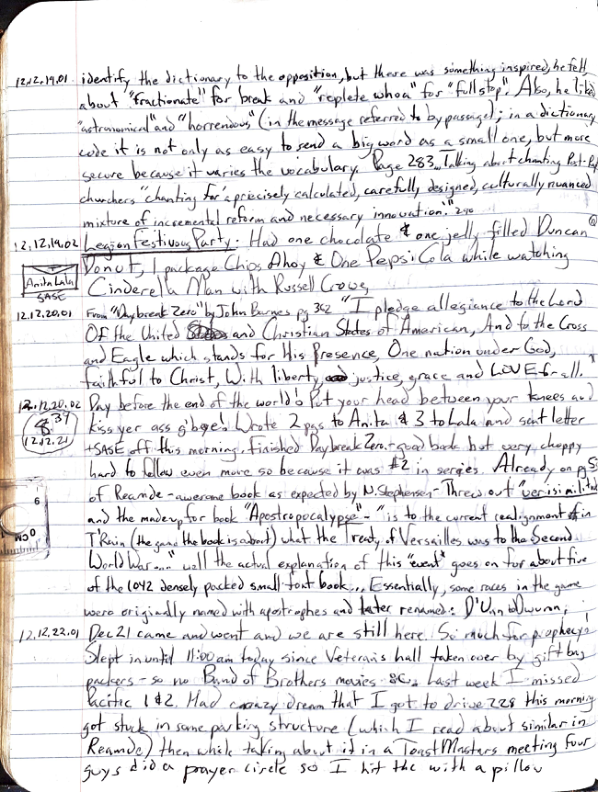 12.12.19.01 identify the dictionary to the opposition, but there was something inspired, he felt
about "fractionate" for break and "replete whoa" for "full stop". Also, he liked
"astronomical" and "horrendous" (in the message referred to by passage); in a dictionary
code it is not only as easy to send a big word as a small one, but more
secure because it varies the vocabulary. Page 283... talking about chanting
churchers "chanting for a precisely calculated, carefully designed, culturally nuanced
mixture of incremental reform and necessary innovation." 290
12.12.19.02 Legion Festivous Party: Had one chocolate & one jelly filled Duncan
Donut, 1 package Chips Ahoy & One Pepsi Cola while watching
Anita Lala
Cinderella Man with Russell Crowe,
SASE
12.12.20.01 From "Daybreak Zero" by John Barnes pg 362 "I pledge allegiance to the Lord
Of the United and Christian States of American, And to the Cross
and Eagle which stands for His Presence, One nation under God,
faithful to Christ, With liberty, justice, grace and LOVE for all."
12.12.20.02 Day before the end of the world: Put your head between your knees and
8:37
kiss yer ass g'bye. Wrote 2 pgs to Anita & 3 to Lala and sent letter
12.12.21
+ SASE off this morning. Finished Daybreak Zero - good book but very choppy
hard to follow even more so because it was #2 in series. Already on pg
of Reamde - awesome book as expected by N. Stephenson - Threw out "verisimilitude
and the made up for book "Apostropocalypse" - "is to the current realignment in
T'Rain (the game the book is about) what the Treaty of Versailles was to the Second
World War..." well the actual explanation of this "event" goes on for about five
of the 1042 densely packed small font book... Essentially, some races in the game
were originally named with apostrophes and later renamed: D'Uinn
12.12.22.01 Dec 21 came and went and we are still here. So much for prophecy!
Slept in until 11:00 am today since Veterans hall taken over by gift bag
packers - so no Band of Brothers movies :C. Last week I missed
Pacific 1 & 2. Had crazy dream that I got to drive 228 this morning
got stuck in some parking structure (which I read about similar in
Reamde) then while talking about it in a ToastMasters meeting four
guys did a prayer circle so I hit the with a pillow